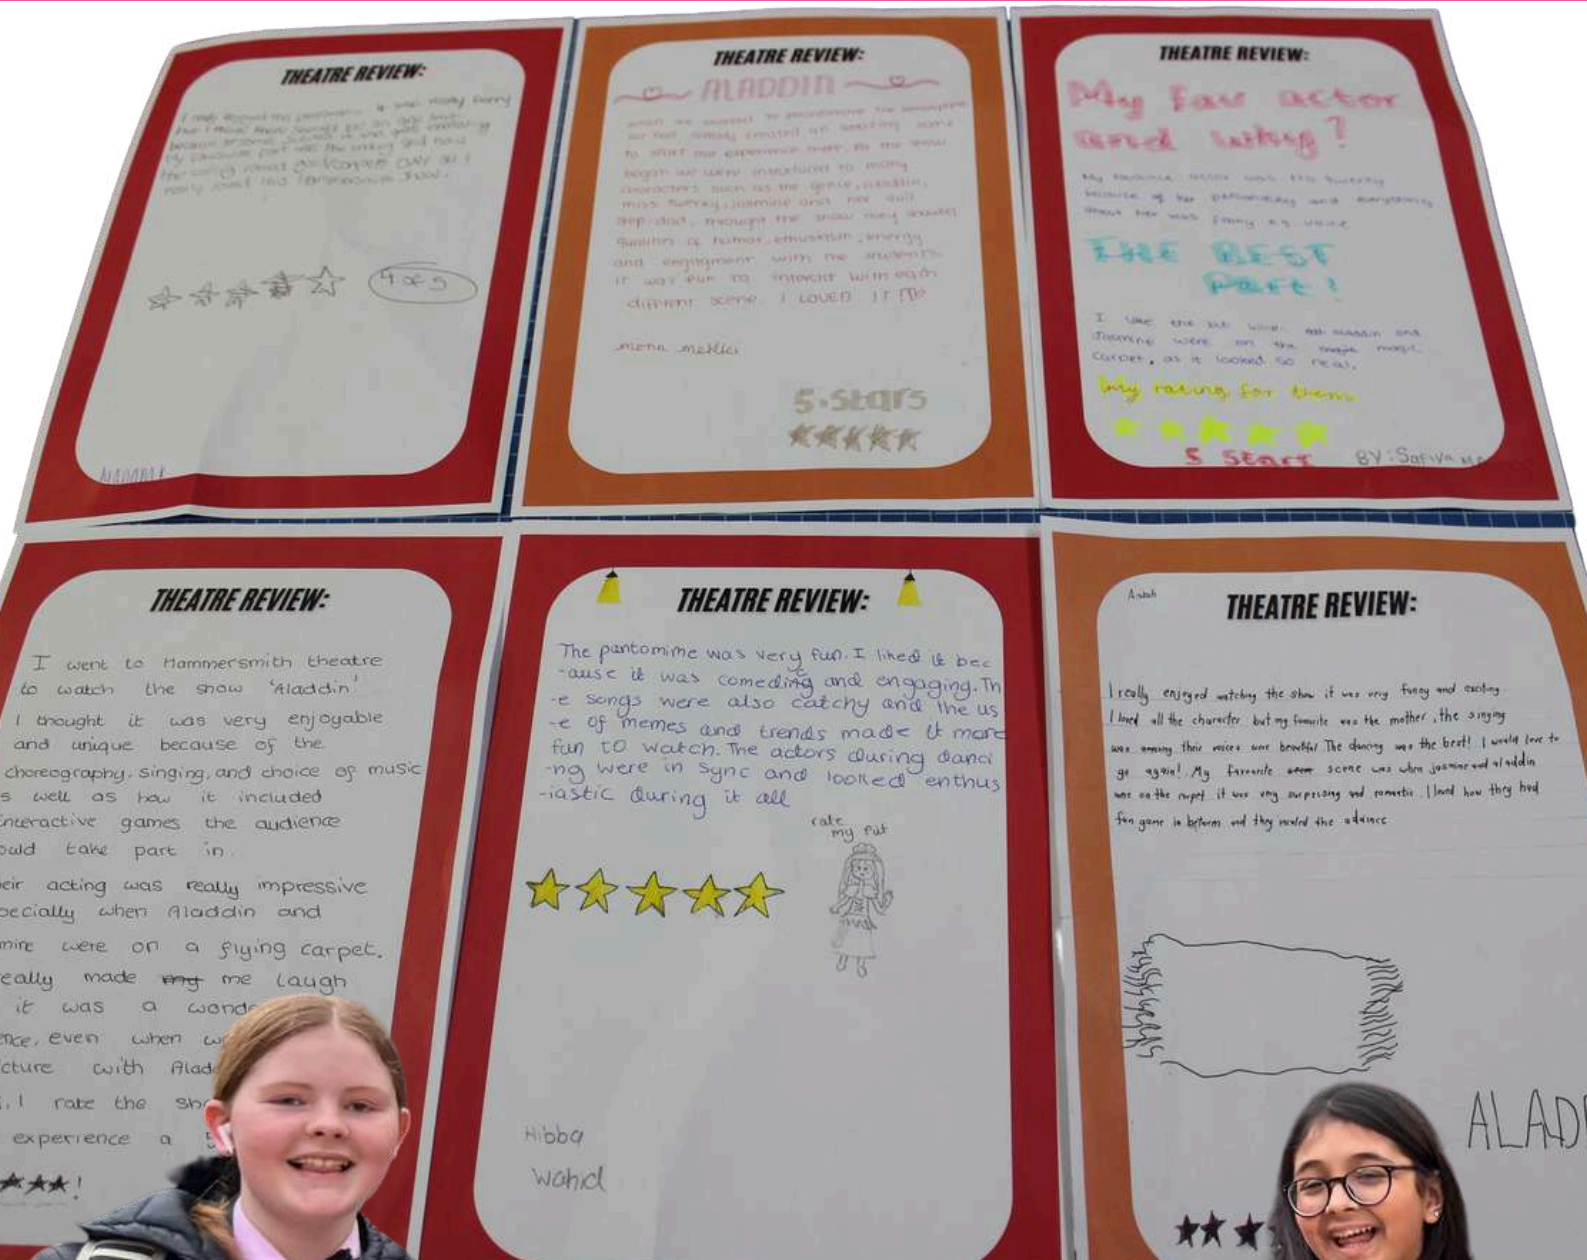 THEATRE REVIEW:
I really enjoyed this pantomime. It was really funny
My favourite part was the singing and how
the carpet
really loved this show.
4 of 5
THEATRE REVIEW:
ALADDIN
when we
had already created an exciting scene
to start our experience there. As the show
began we were introduced to many
characters such as the genie, aladdin,
miss twankey, jasmine and her evil
step dad. throught the show they showed
qualities of humor, energy
and with the students
it was fun to interact with each
different scene. I LOVED IT
mona mekki
5 stars
THEATRE REVIEW:
My fav actor
and why?
My favourite actor was twankey
because of her personality and everything
about her was funny e.g. voice
THE BEST
Part!
I like the bit when aladdin and
Jasmine were on the magic
carpet, as it looked so real.
My rating for them
5 Stars
BY: Safiya
THEATRE REVIEW:
I went to Hammersmith theatre
to watch the show 'Aladdin'
I thought it was very enjoyable
and unique because of the
choreography, singing, and choice of music
s well as how it included
interactive games the audience
ould take part in.
eir acting was really impressive
pecially when Aladdin and
mine were on a flying carpet.
eally made my me laugh
it was a wonde
ence, even when w
cture with Alad
I rate the sh
experience a 5
!
THEATRE REVIEW:
The pantomime was very fun. I liked it bec
-ause it was comeding and engaging. Th
-e songs were also catchy and the us
-e of memes and trends made it more
fun to watch. The actors during danci
-ng were in sync and looked enthus
-iastic during it all
rate
my fit
Hibba
Wahid
THEATRE REVIEW:
I really enjoyed watching the show it was very funny and exciting
I loved all the character but my favourite was the mother, the singing
was amazing their voices were beautiful The dancing was the best! I would love to
go again! My favourite scene was when jasmine and aladdin
was on the carpet it was very surprising and romantic. I loved how they had
fun game in beturn and they incled the adiance
ALAD